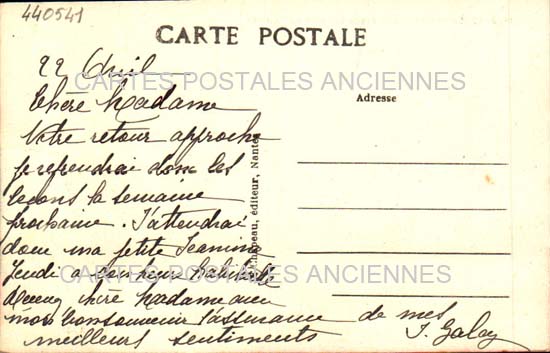 440541
CARTE POSTALE
22 Avril
CARTES POSTALES ANCIENNES
Chère Madame
Adresse
Votre retour approche
je reprendrai donc les
leçons la semaine
prochaine. J'attendrai
donc ma petite Jeannine
Jeudi à son heure habituelle
CARTES POSTALES ANCIENNES
chère Madame avec
mon bon souvenir l'assurance de mes
meilleurs sentiments
éditeur, Nantes